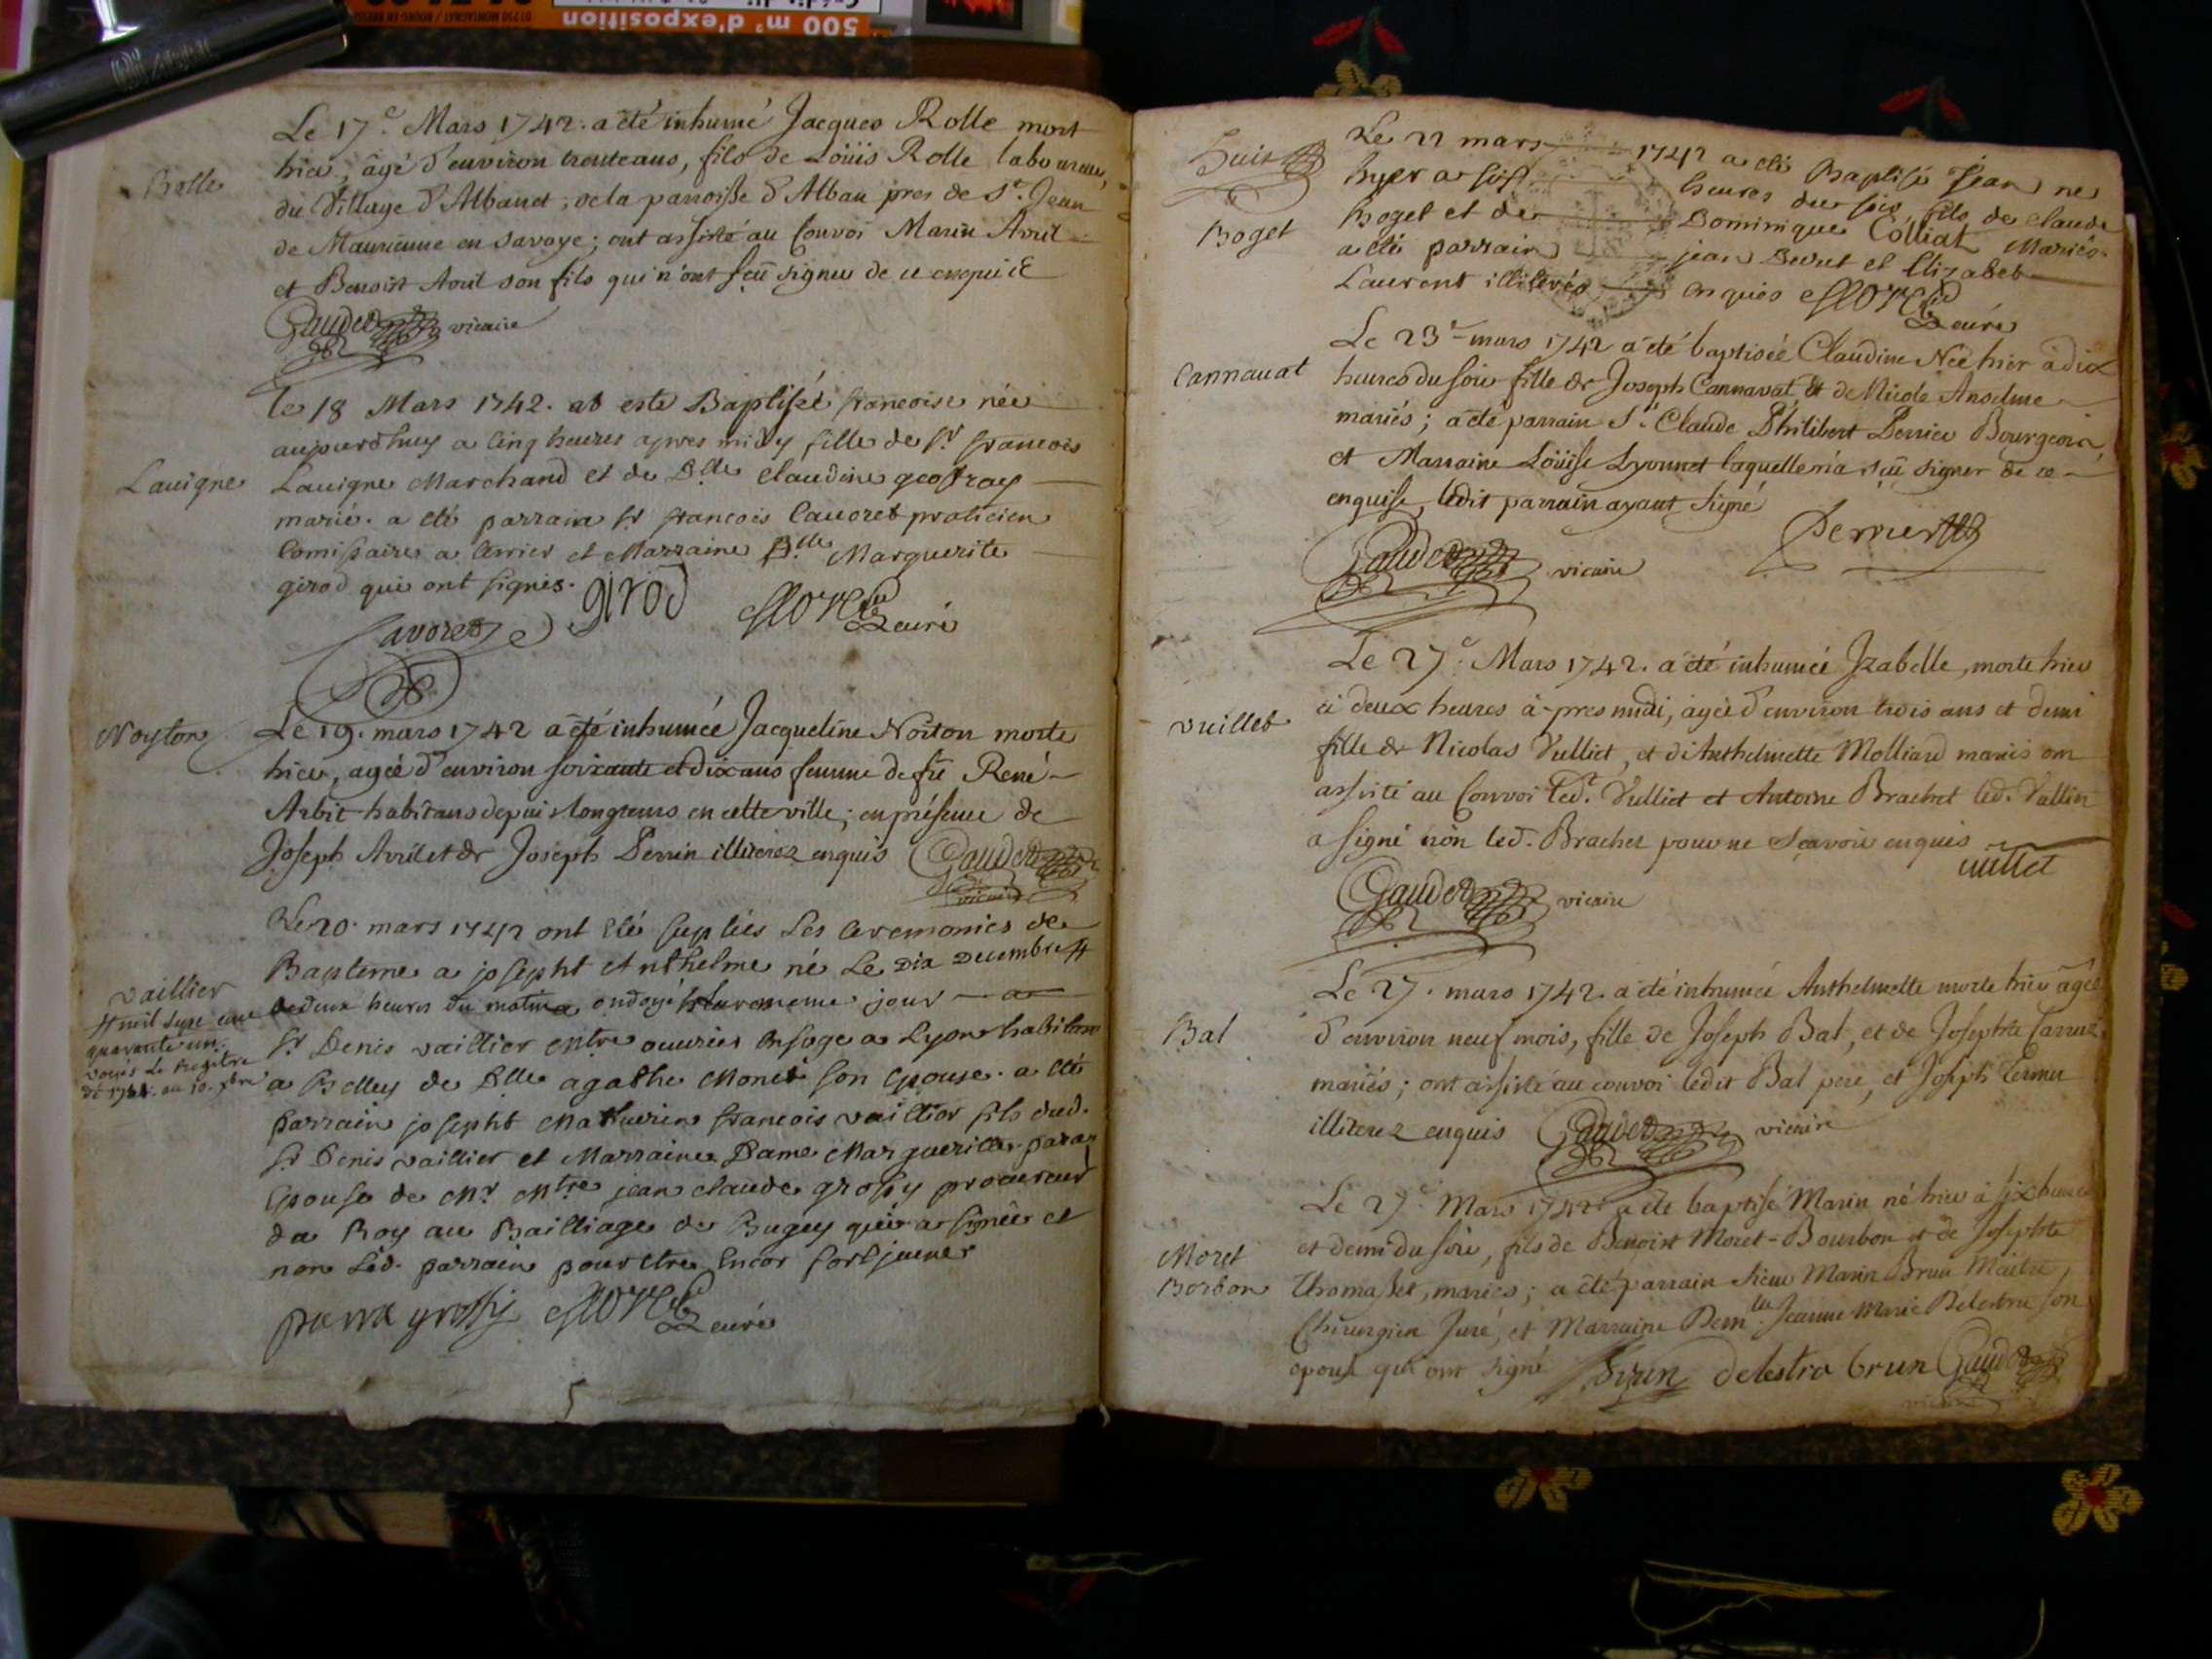 500 m² d'exposition
01250 MONTAGNAT / BOURG EN BRESSE
Rolle
Le 17.e Mars 1742. a été inhumé Jacques Rolle mort
hier, âgé d'environ trente ans, fils de Loüis Rolle laboureur,
du Village d'Albanet, de la parroisse d'Alban pres de St. Jean
de Maurienne en Savoye; ont assisté au Convoi Marin Avril
et Benoist Avril son fils qui n'ont sçu signer de ce enquis
Gaudet vicaire
Lavigne
Le 18 Mars 1742. at esté Baptisée francoise née
aujourdhuy a Cinq heures apres midy fille de sr francois
Lavigne Marchand et de Dlle Claudine geoffray
marié. a été parrain sr francois Cavoret praticien
Comissaire a terrier et Marraine Dlle Marguerite
girod qui ont signés.
Cavoret girod Moret curé
Noyton
Le 19. mars 1742 a été inhumée Jacqueline Noiton morte
hier, agée d'environ soixante et dix ans femme de fû René
Arbit habitans depuis longtems en cette ville; en présence de
Joseph Avril et de Joseph Perrin illiterez enquis Gaudet
vicaire
Le 20. mars 1742 ont été supliés Les Ceremonies de
Bapteme a josepht Anthelme né Le dix decembre #
Vaillier
# mil sept cent
quarante un.
voiés Le registre
de 1741. au 10. xbre
a deux heures du matin, ondoyé le meme jour a
sr Denis vaillier mtre ouvrier en soye a Lyon habitant
a Belley de Dlle agathe Monet son epouse. a été
parrain josepht Mathurin francois vaillier fils dud.
sr Denis vaillier et Marraine Dame Margueritte parra
Epouse de Mr Mtre jean claude grossy procureur
du Roy au Bailliage de Bugey qui a signée et
non Led. parrain pour etre Encor fort jeune
parra grossy Moret curé
5
huit
Boget
Le 22 mars 1742 a été Baptisé Jean né
hyer a sept heures du soir fils de claude
Boget et de Dominique Colliat Mariés.
a été parrain jean et Elizabet
Laurent illiterés enquis Moret
curé
Cannavat
Le 23e mars 1742 a été baptisée Claudine Née hier à dix
heures du soir fille de Joseph Cannavat et de Nicole Anselme
mariés; a été parrain Sr. Claude Philibert Perrier Bourgeois,
et Marraine Loüise Lyonnet laquelle n'a sçû signer de ce
enquise, ledit parrain ayant signé
Perrier
Gaudet vicaire
Vuillet
Le 27.e Mars 1742. a été inhumée Izabelle, morte hier
à deux heures â-pres midi, agée d'environ trois ans et demi
fille de Nicolas Vulliet, et d'Anthelmette Molliard mariés ont
assisté au Convoi led.t Vulliet et Antoine Brachet led. Vulliet
a signé non led. Brachet pour ne Sçavoir enquis
vuillet
Gaudet vicaire
Bal
Le 27. mars 1742. a été inhumée Anthelmette morte hier âgée
d'environ neuf mois, fille de Joseph Bal, et de Josephte
mariés; ont assisté au convoi ledit Bal pere, et Joseph
illiterez enquis Gaudet vicaire
Moret
Borbon
Le 27.e Mars 1742 a été baptisé Marin né hier à six heures
et demi du soir, fils de Benoist Moret-Bourbon et de Josephte
Thomasset, mariés; a été parrain sieur Marin Brun Maitre
Chirurgien Juré, et Marraine Dem.lle Jeanne Marie Delestra son
epouse qui ont signé Brun delestra brun Gaudet
vicaire